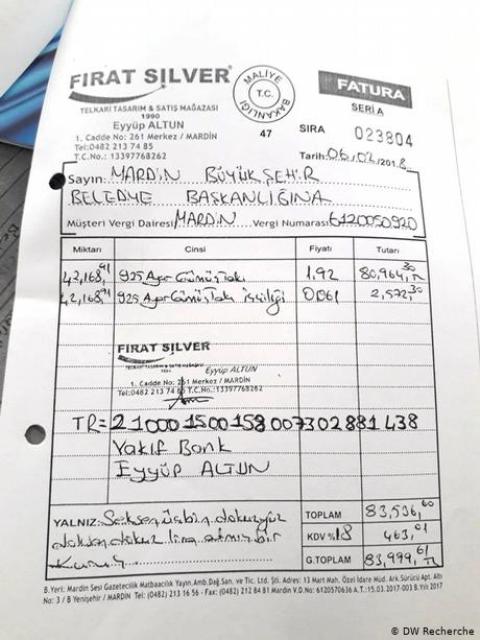 FIRAT SILVER
TELKARİ TASARIM & SATIŞ MAĞAZASI
1990
Eyyüp ALTUN
1. Cadde No: 261 Merkez / MARDİN
Tel:0482 213 74 85
T.C.No.: 13397768262
MALİYE
T.C.
BAKANLIĞI
47
FATURA
SERİ A
SIRA 023804
Tarih: 06/02/2018
Sayın: MARDİN BÜYÜKŞEHİR
BELEDİYE BAŞKANLIĞINA
Müşteri Vergi Dairesi MARDİN Vergi Numarası 6120050920
Miktarı Cinsi Fiyatı Tutarı
42,168,41 925 Ayar Gümüş Takı 1.92 80,964,30 TL
42,168,41 925 Ayar Gümüş Takı işçiliği 0.061 2,572,30
FIRAT SILVER
TELKARİ TASARIM & SATIŞ MAĞAZASI
Eyyüp ALTUN
1. Cadde No: 261 Merkez / MARDİN
Tel:0482 213 74 85 T.C.No: 13397768262
TR= 21000 1500 158 007302881 438
Vakıf Bank
Eyyüp ALTUN
YALNIZ: Seksenüçbin dokuzyüz
doksandokuz lira altmışbir
Kuruş
TOPLAM 83,536,60
KDV %18 463,01
G.TOPLAM 83,999,61 TL
B.Yeri: Mardin Sesi Gazetecilik Matbaacılık Yayın.Amb.Dağ.San. ve Tic. Ltd. Şti. Adres: 13 Mart Mah. Özel İdare Müd. Ark.Sürücü Apt. Altı
No: 3 / B Yenişehir / MARDİN Tel: (0482) 213 16 56 - Fax: (0482) 212 84 81 Mardin V.D.No: 6120570636 A.T.:15.03.2017-003 B.Yıl 2017
© DW Recherche